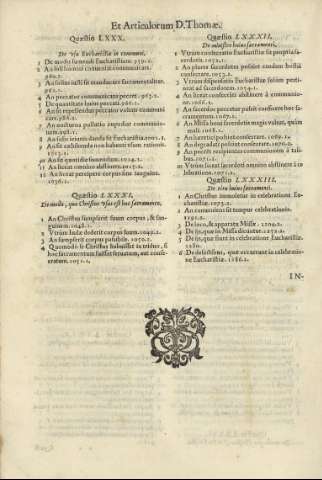 Et Articulorum D. Thomæ.
Quæstio LXXX.
De vsu Eucharistiæ in communi.
1 De modo sumendi Eucharistiam. 959.1.
2 An solius hominis
3 An solus iustus manducet sacramentaliter.
4 An peccator communicans peccet. 963.2.
5 De quantitate huius peccati.
6 An sit repellendus peccator volens communicare.
7 An nocturna pollutio impediat communionem.
8 An solis ieiunis danda sit Eucharistia. 1001.1.
9 An sit exhibenda non habenti vsum rationis.
10 An sit quotidie sumendum. 1024.1.
11 An liceat omnino abstinere. 1027.1.
12 An liceat percipere corpus sine sanguine.
1036.1.
Quæstio LXXXI.
De modo, quo Christus vsus est hoc sacramento.
1 An Christus sumpserit suum corpus, & sanguinem. 1048.1.
2 Vtrum Iudæ dederit corpus suum. 1049.2.
3 An sumpserit corpus passibile. 1050.2.
4 Quomodo se Christus habuisset in triduo, si
hoc sacramentum fuisset seruatum, aut consecratum. 1051.1.
Quæstio LXXXII.
De ministro huius sacramenti.
1 Vtrum consecratio Eucharistiæ sit propria sacerdotis.
2 An plures sacerdotes possint eandem hostiam
consecrare. 1053.2.
3 Vtrum dispensatio Eucharistiæ solùm pertineat ad sacerdotem. 1054.1.
4 An liceat conficienti abstinere à communione.
5 An sacerdos peccator possit conficere hoc sacramentum.
6 An Missa boni sacerdotis magis valeat, quàm
mali.
7 An hæretici possint consecrare. 1069.1.
8 An degradatus possit consecrare. 1070.1.
9 An possimus recipere communionem à talibus. 1071.1.
10 Vtrum liceat sacerdoti omnino abstinere à celebratione.
Quæstio LXXXIII.
De ritu huius sacramenti.
1 An Christus immoletur in celebratione Eucharistiæ. 1075.2.
2 An conuenienti sit tempus celebrationis.
3 De loco, & apparatu Missæ. 1204.2.
4 De ijs, quæ in Missa dicuntur. 1252.2.
5 De ijs, quæ fiunt in celebratione Eucharistiæ.
1280.
6 De defectibus, qui occurrunt in celebratione Eucharistiæ. 1286.1.
IN-